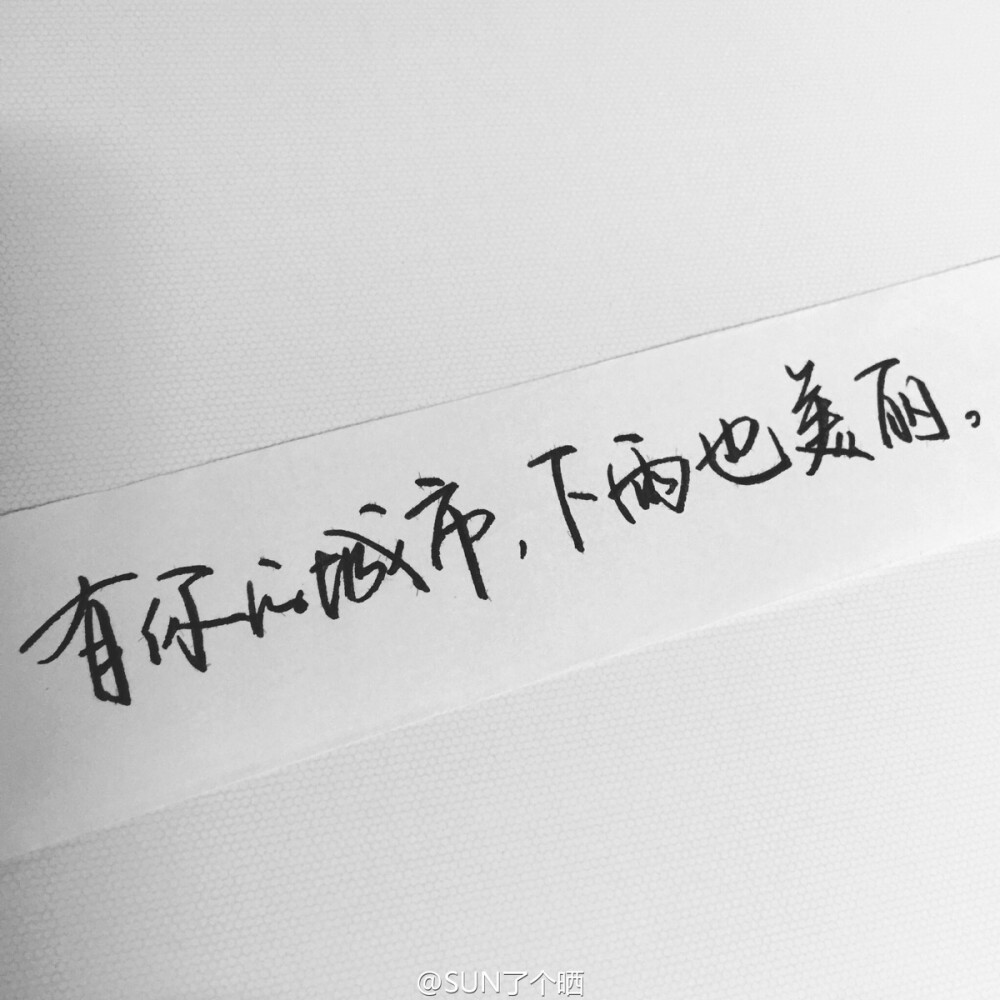 有你的城市,下雨也美丽。
@SUN了个晒